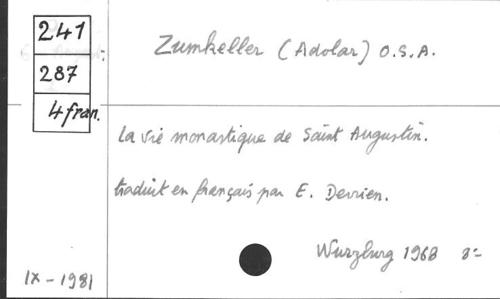 241
287
4 fran.
Zumkeller (Adolar) O.S.A.
La vie monastique de Saint Augustin.
traduit en français par E. Devrien.
Wurzburg 1968 8=
IX - 1981